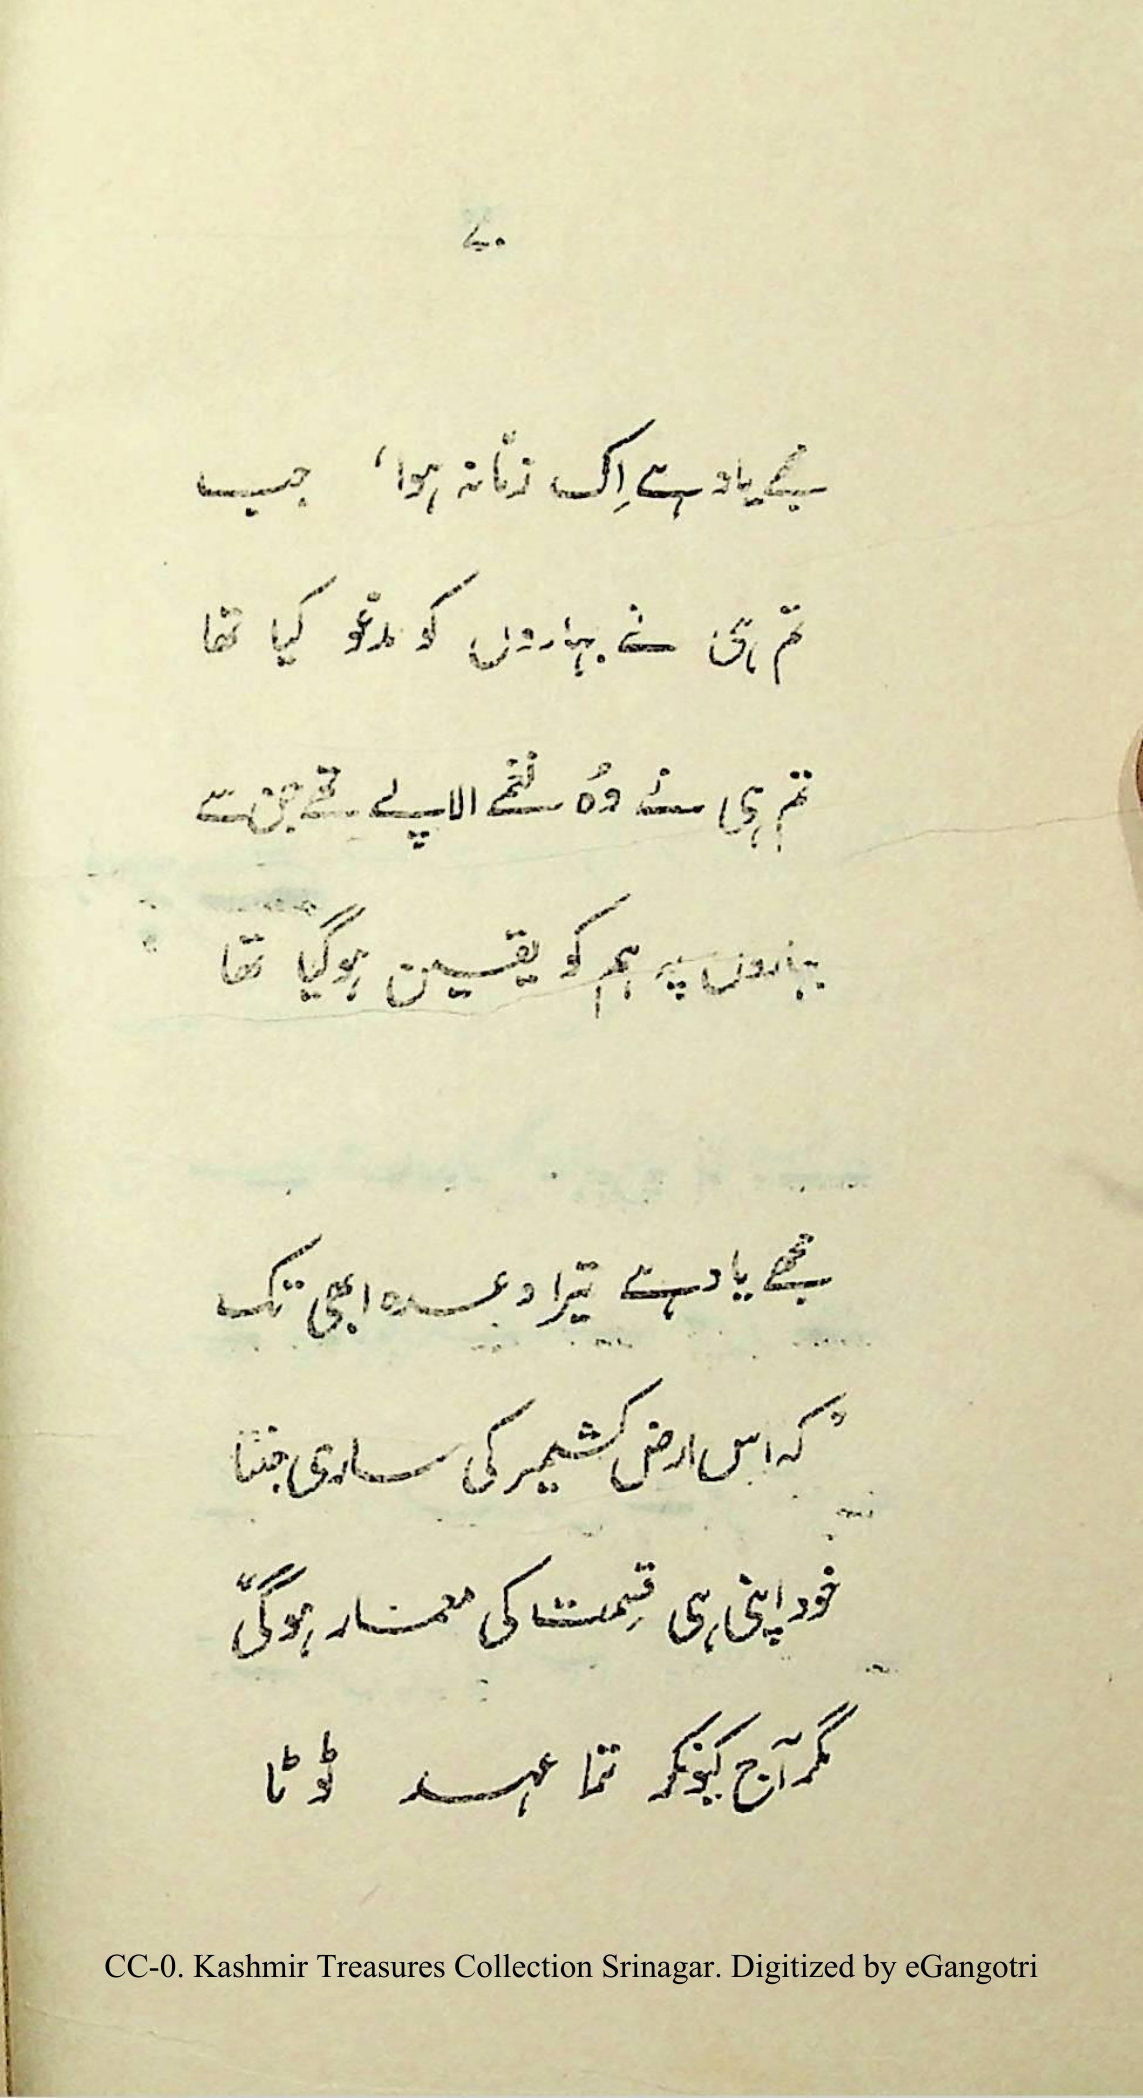 مجھے یاد ہے اِک زمانہ ہوا، جب
تم ہی نے بہاروں کو مدعو کیا تھا
تم ہی نے وہ نغمے الاپے تھے جن سے
بہاروں پہ ہم کو یقین ہوگیا تھا
مجھے یاد ہے تیرا وعدہ ابھی تک
کہ اس ارض کشمیر کی ساری جنتا
خود اپنی ہی قسمت کی معمار ہوگی
مگر آج کیونکر عہد ٹوٹا
CC-0. Kashmir Treasures Collection Srinagar. Digitized by eGangotri